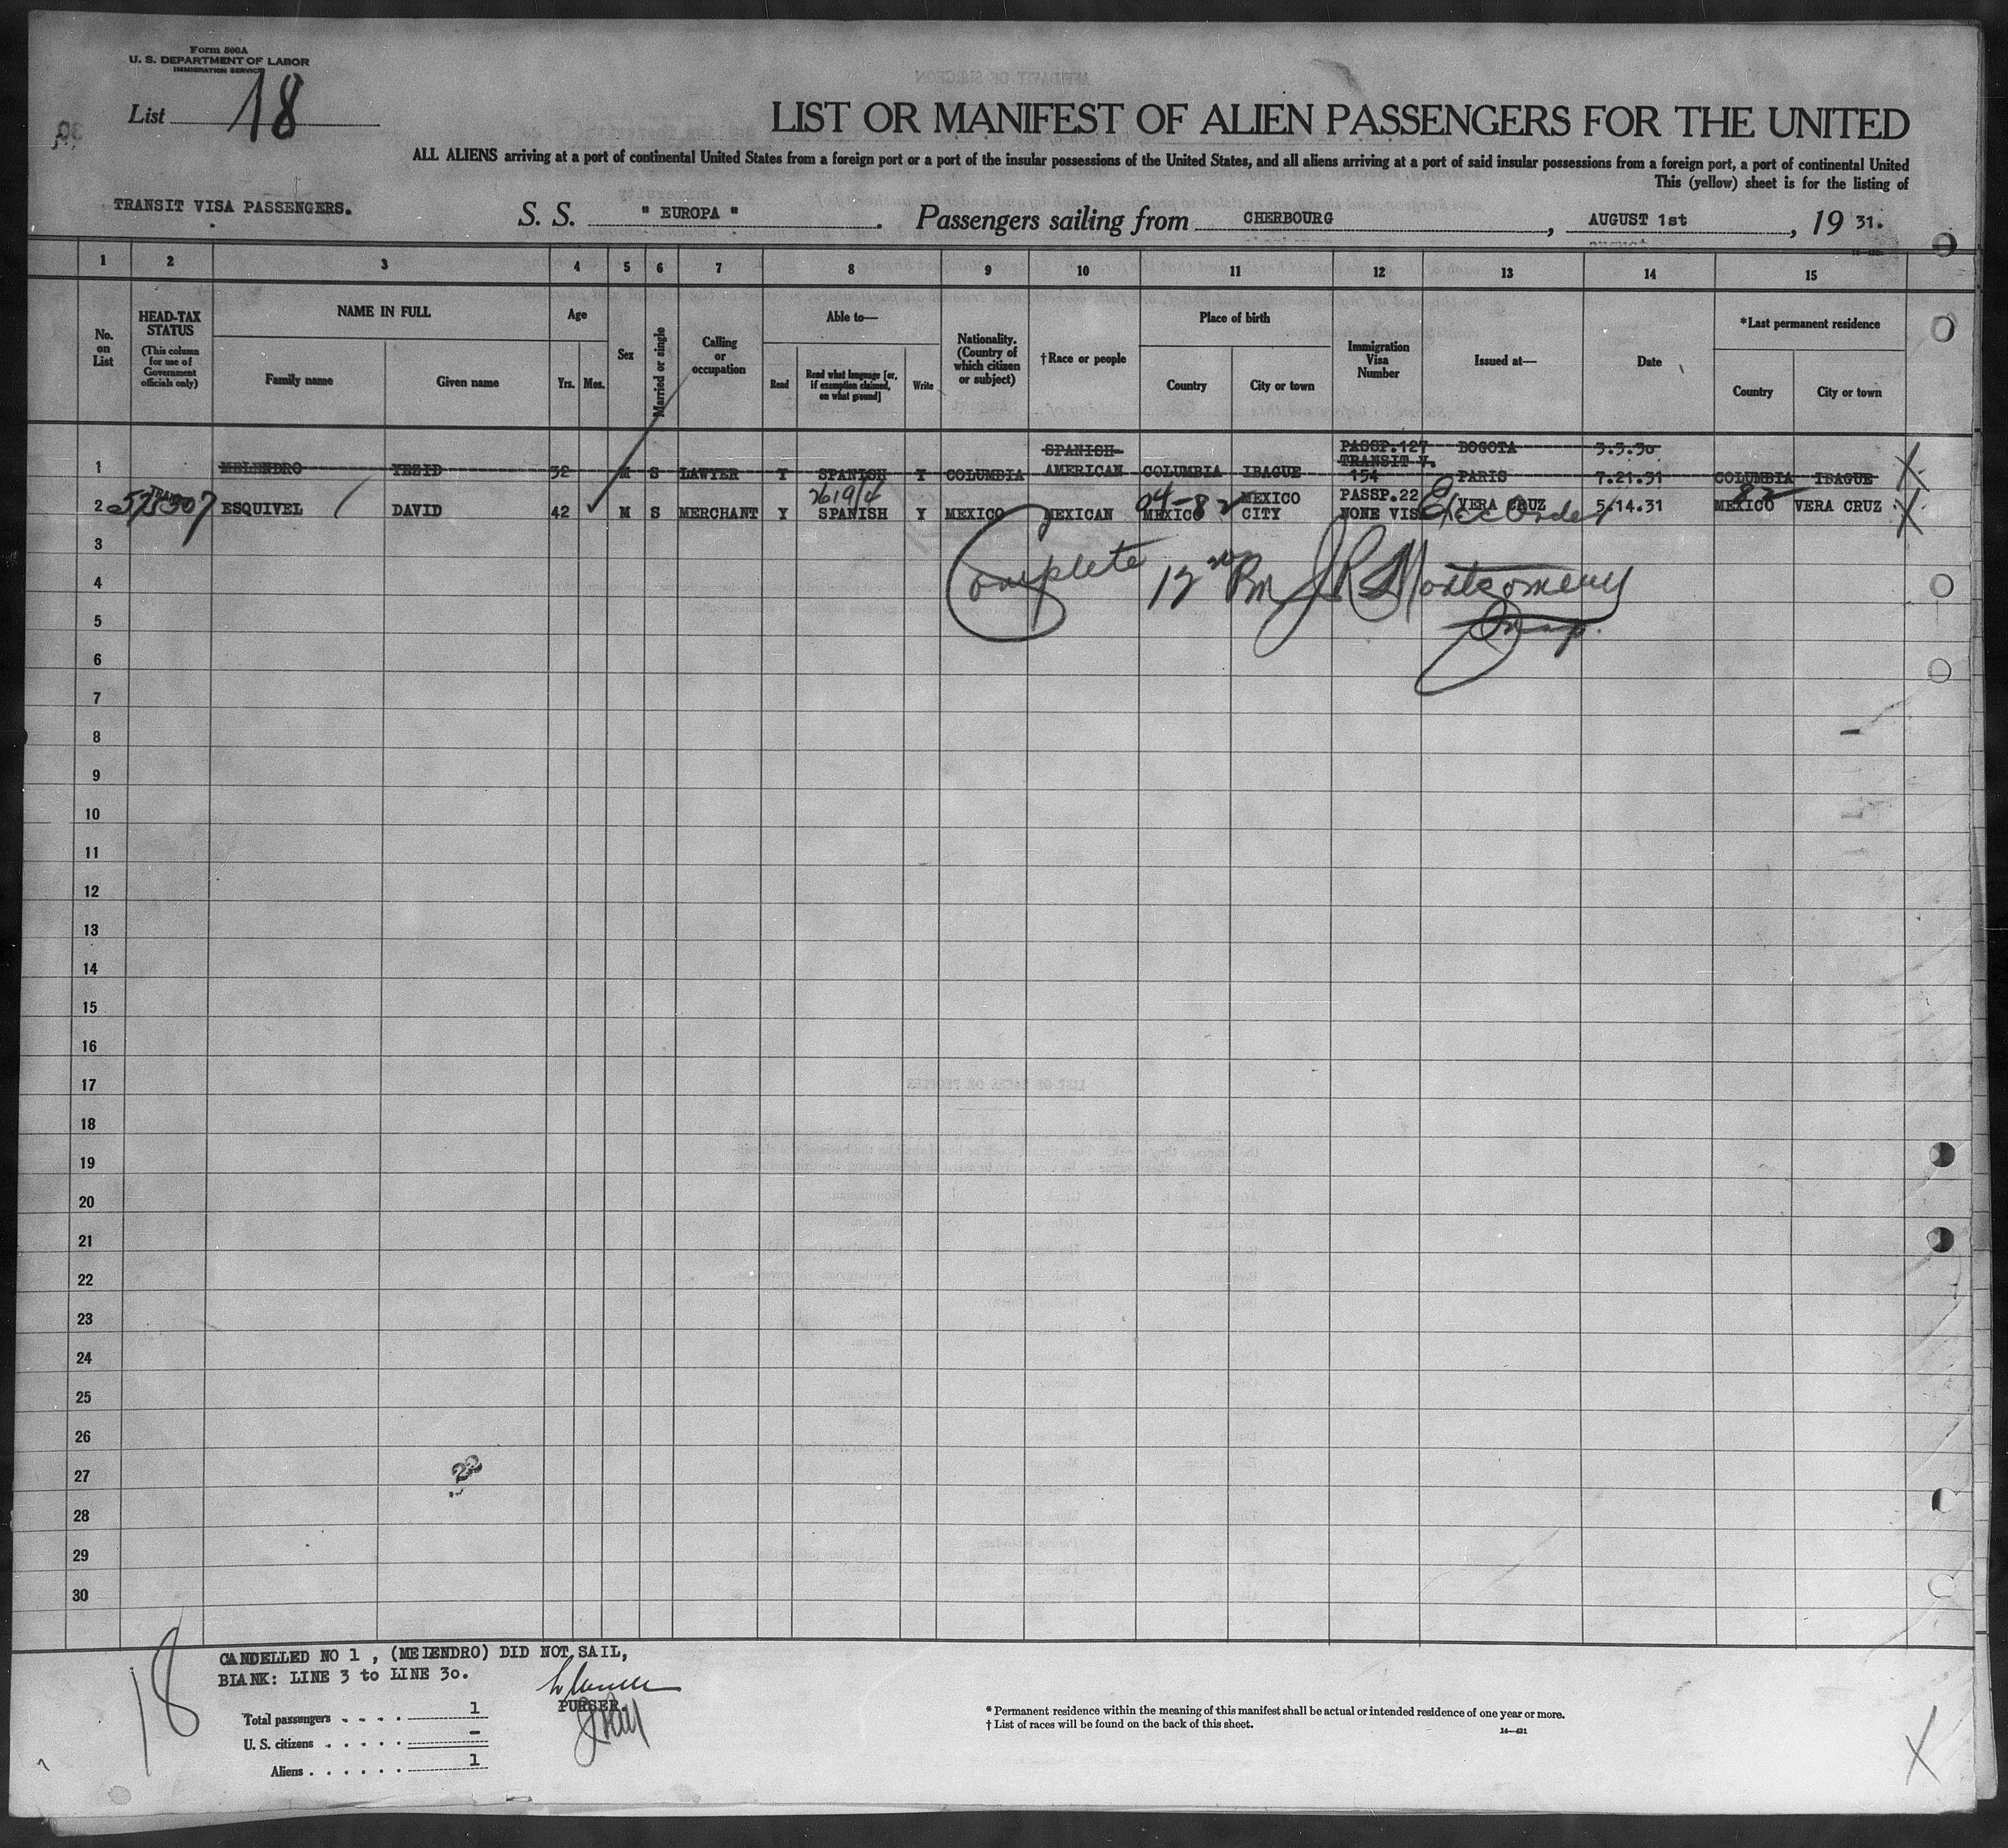 Form 500A
U. S. DEPARTMENT OF LABOR
IMMIGRATION SERVICE
List 18
LIST OR MANIFEST OF ALIEN PASSENGERS FOR THE UNITED
ALL ALIENS arriving at a port of continental United States from a foreign port or a port of the insular possessions of the United States, and all aliens arriving at a port of said insular possessions from a foreign port, a port of continental United
This (yellow) sheet is for the listing of
TRANSIT VISA PASSENGERS.
S. S. " EUROPA " . Passengers sailing from CHERBOURG , AUGUST 1st , 19 31.
1 2 3 4 5 6 7 8 9 10 11 12 13 14 15
No. on List
HEAD-TAX STATUS
(This column for use of Government officials only)
NAME IN FULL
Family name
Given name
Age
Yrs. Mos.
Sex
Married or single
Calling or occupation
Able to—
Read
Read what language [or, if exemption claimed, on what ground]
Write
Nationality. (Country of which citizen or subject)
†Race or people
Place of birth
Country
City or town
Immigration Visa Number
Issued at—
Date
*Last permanent residence
Country
City or town
SPANISH- PASSP.127 BOGOTA 3.3.30
TRANSIT V.
1 MELENDRO YEZID 32 M S LAWYER Y SPANISH Y COLUMBIA AMERICAN COLUMBIA IBAGUE 154 PARIS 7.21.31 COLUMBIA IBAGUE X
04-82 MEXICO PASSP.22 82
2 ESQUIVEL DAVID 42 M S MERCHANT Y SPANISH Y MEXICO MEXICAN MEXICO CITY NONE VISA VERA CRUZ 5.14.31 MEXICO VERA CRUZ X
Ex Order
3
Complete 12 Pm J R Montgomery
4
5
Insp.
6
7
8
9
10
11
12
13
14
15
16
17
18
19
20
21
22
23
24
25
26
27
28
29
30
18
CANDELLED NO 1 , (MELENDRO) DID NOT SAIL,
BLANK: LINE 3 to LINE 30.
PURSER
Total passengers . . . . 1
U. S. citizens . . . . . -
Aliens . . . . . . 1
* Permanent residence within the meaning of this manifest shall be actual or intended residence of one year or more.
† List of races will be found on the back of this sheet.
14—421
X